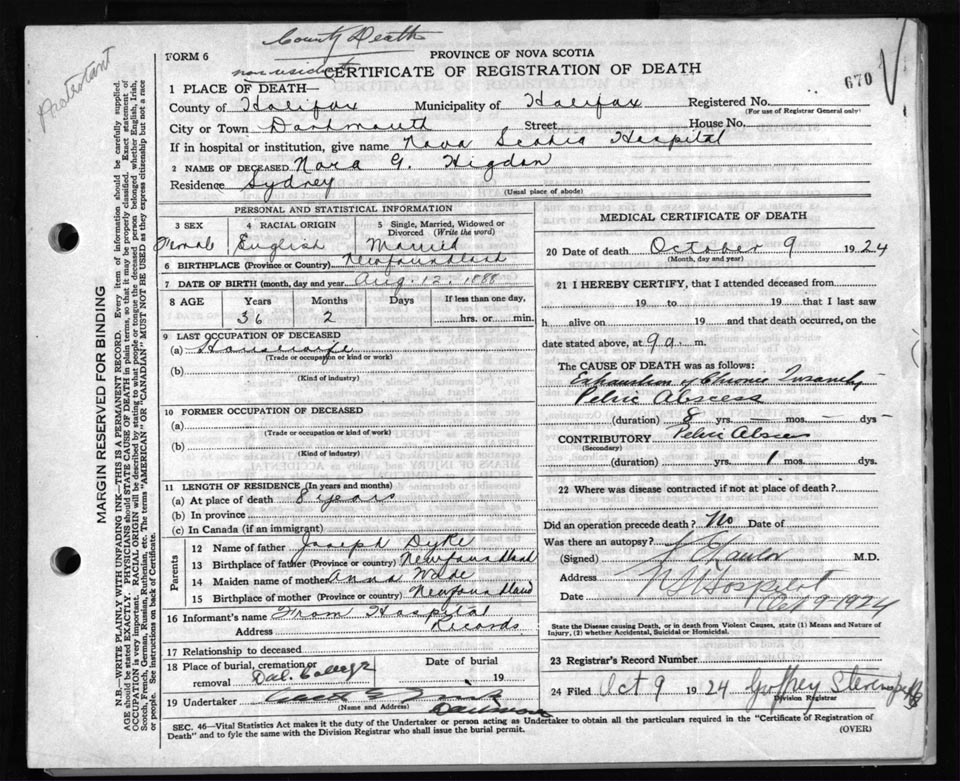 County Death
Protestant
FORM 6
PROVINCE OF NOVA SCOTIA
non resident
CERTIFICATE OF REGISTRATION OF DEATH
670
1 PLACE OF DEATH—
County of Halifax Municipality of Halifax Registered No.
(For use of Registrar General only)
City or Town Dartmouth Street House No.
If in hospital or institution, give name Nova Scotia Hospital
2 NAME OF DECEASED Nora G. Higdon
Residence Sydney
(Usual place of abode)
PERSONAL AND STATISTICAL INFORMATION
3 SEX
Female
4 RACIAL ORIGIN
English
5 Single, Married, Widowed or Divorced (Write the word)
Married
6 BIRTHPLACE (Province or Country) Newfoundland
7 DATE OF BIRTH (month, day and year) Aug. 12. 1888
8 AGE Years Months Days If less than one day,
36 2 hrs. or min.
9 LAST OCCUPATION OF DECEASED
(a) Housewife
(Trade or occupation or kind of work)
(b)
(Kind of industry)
10 FORMER OCCUPATION OF DECEASED
(a)
(Trade or occupation or kind of work)
(b)
(Kind of industry)
11 LENGTH OF RESIDENCE (In years and months)
(a) At place of death 8 years
(b) In province
(c) In Canada (if an immigrant)
Parents
12 Name of father Joseph Dyke
13 Birthplace of father (Province or country) Newfoundland
14 Maiden name of mother Anna
15 Birthplace of mother (Province or country) Newfoundland
16 Informant's name From Hospital
Address Records
17 Relationship to deceased
18 Place of burial, cremation or Date of burial
removal Dal. College 19
19 Undertaker
(Name and Address)
MEDICAL CERTIFICATE OF DEATH
20 Date of death October 9 1924
(Month, day and year)
21 I HEREBY CERTIFY, that I attended deceased from
19 to 19 that I last saw
h alive on 19 and that death occurred, on
date stated above, at 9 a. m.
The CAUSE OF DEATH was as follows:
Exhaustion of Chronic Insanity
Pelvic Abscess
(duration) 8 yrs. mos. dys-
CONTRIBUTORY Pelvic Abscess
(Secondary)
(duration) yrs. 1 mos. dys.
22 Where was disease contracted if not at place of death?
Did an operation precede death? No Date of
Was there an autopsy?
(Signed) M.D.
Address N S Hospital
Date Oct 9-1924
State the Disease causing Death, or in death from Violent Causes, state (1) Means and Nature of
Injury, (2) whether Accidental, Suicidal or Homicidal.
23 Registrar's Record Number
24 Filed Oct 9 1924 Geoffrey Stevens
Division Registrar
SEC. 46—Vital Statistics Act makes it the duty of the Undertaker or person acting as Undertaker to obtain all the particulars required in the "Certificate of Registration of
Death" and to fyle the same with the Division Registrar who shall issue the burial permit.
(OVER)
MARGIN RESERVED FOR BINDING
N.B.—WRITE PLAINLY WITH UNFADING INK—THIS IS A PERMANENT RECORD. Every item of information should be carefully supplied.
AGE should be stated EXACTLY. PHYSICIANS should STATE CAUSE OF DEATH in plain terms, so that it may be properly classified. Exact statement of
OCCUPATION is very important. RACIAL ORIGIN will be described by stating to what people or tongue the deceased person belonged whether English, Irish,
Scotch, French, German, Russian, Ruthenian, etc. The terms "AMERICAN" or "CANADIAN" MUST NOT BE USED as they express citizenship but not a race
or people. See instructions on back of Certificate.